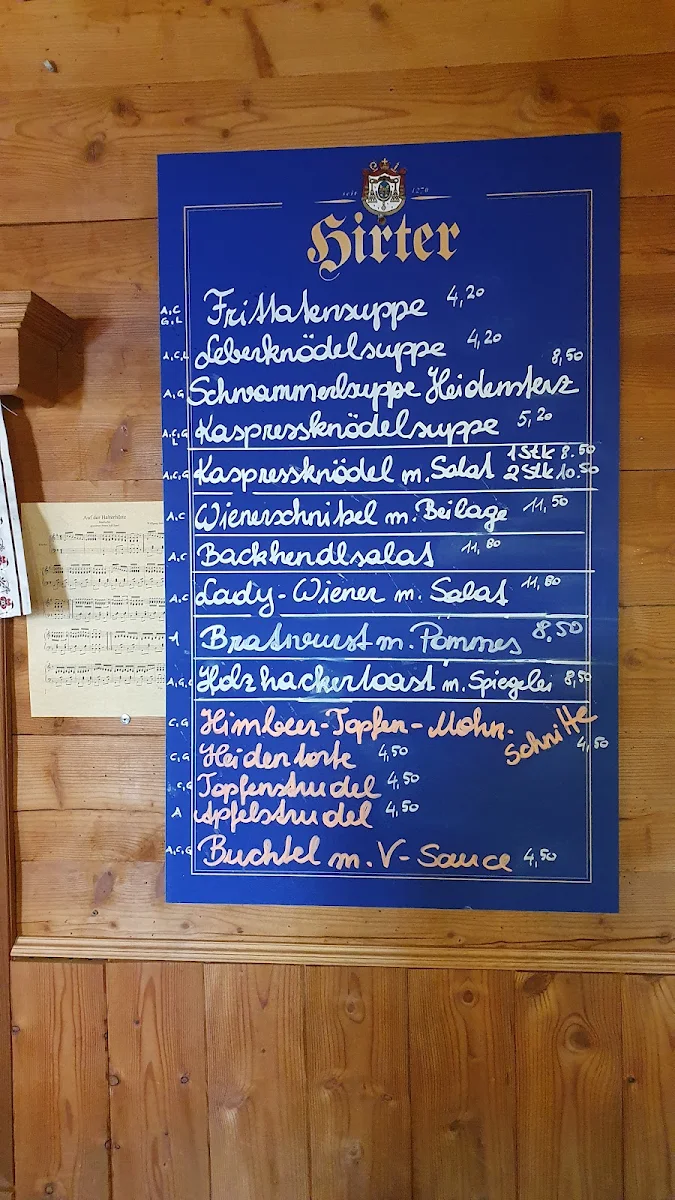 seit 1270
Hirter
A,C G,L Frittatensuppe 4,20
A,C,L Leberknödelsuppe 4,20
A,G Schwammerlsuppe Heidensterz 8,50
A,C,G L Kaspressknödelsuppe 5,20
A,C,G Kaspressknödel m. Salat 1 Stk 8.50
2 Stk 10.50
A,C Wienerschnitzel m. Beilage 11,50
A,C Backhendlsalat 11,80
A,C Lady-Wiener m. Salat 11,80
Bratwurst m. Pommes 8,50
A,G, Holzhackertoast m. Spiegelei 8,50
C,G Himbeer-Topfen-Mohn-
Schnitte 4,50
C,G Heidentorte 4,50
C,G Topfenstrudel 4,50
A Apfelstrudel 4,50
A,C,G Buchtel m. V-Sauce 4,50
Auf der Halterhütte